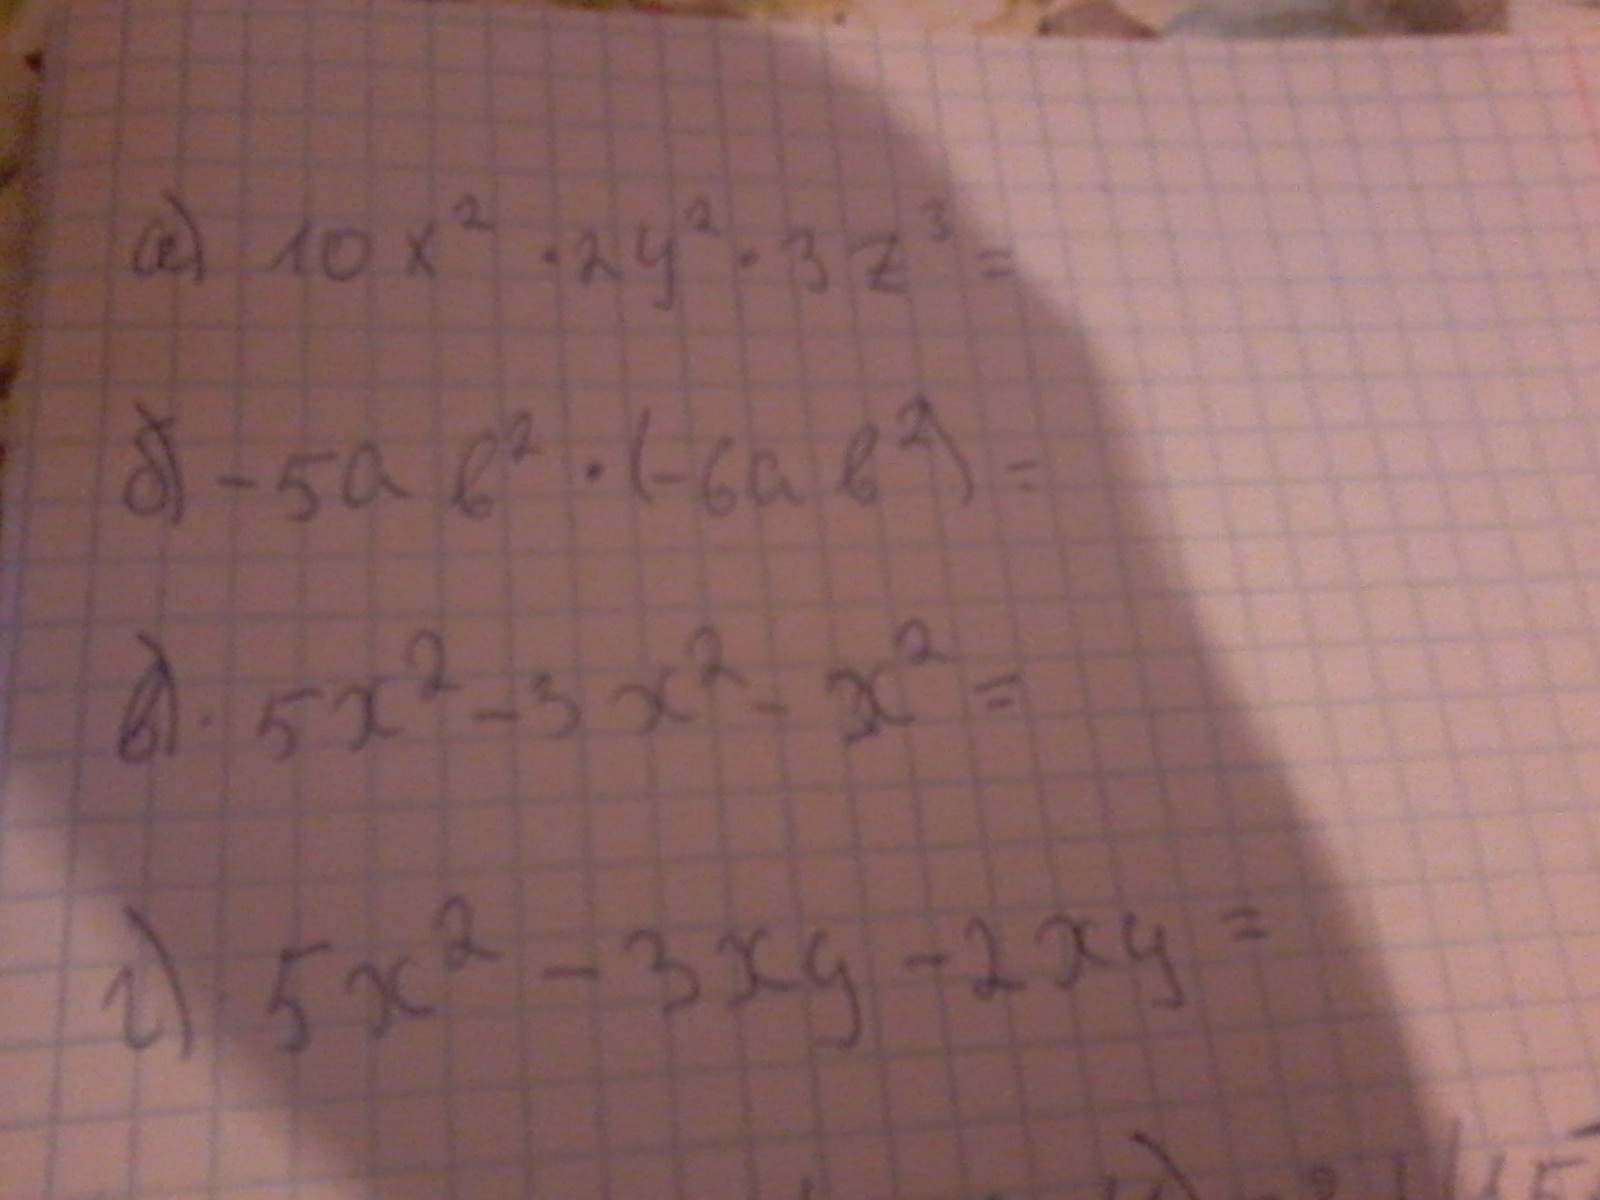 а) 10x² · 2y² · 3z³ =
б) -5ab² · (-6ab²) =
в) 5x² - 3x² - x² =
г) 5x² - 3xy - 2xy =